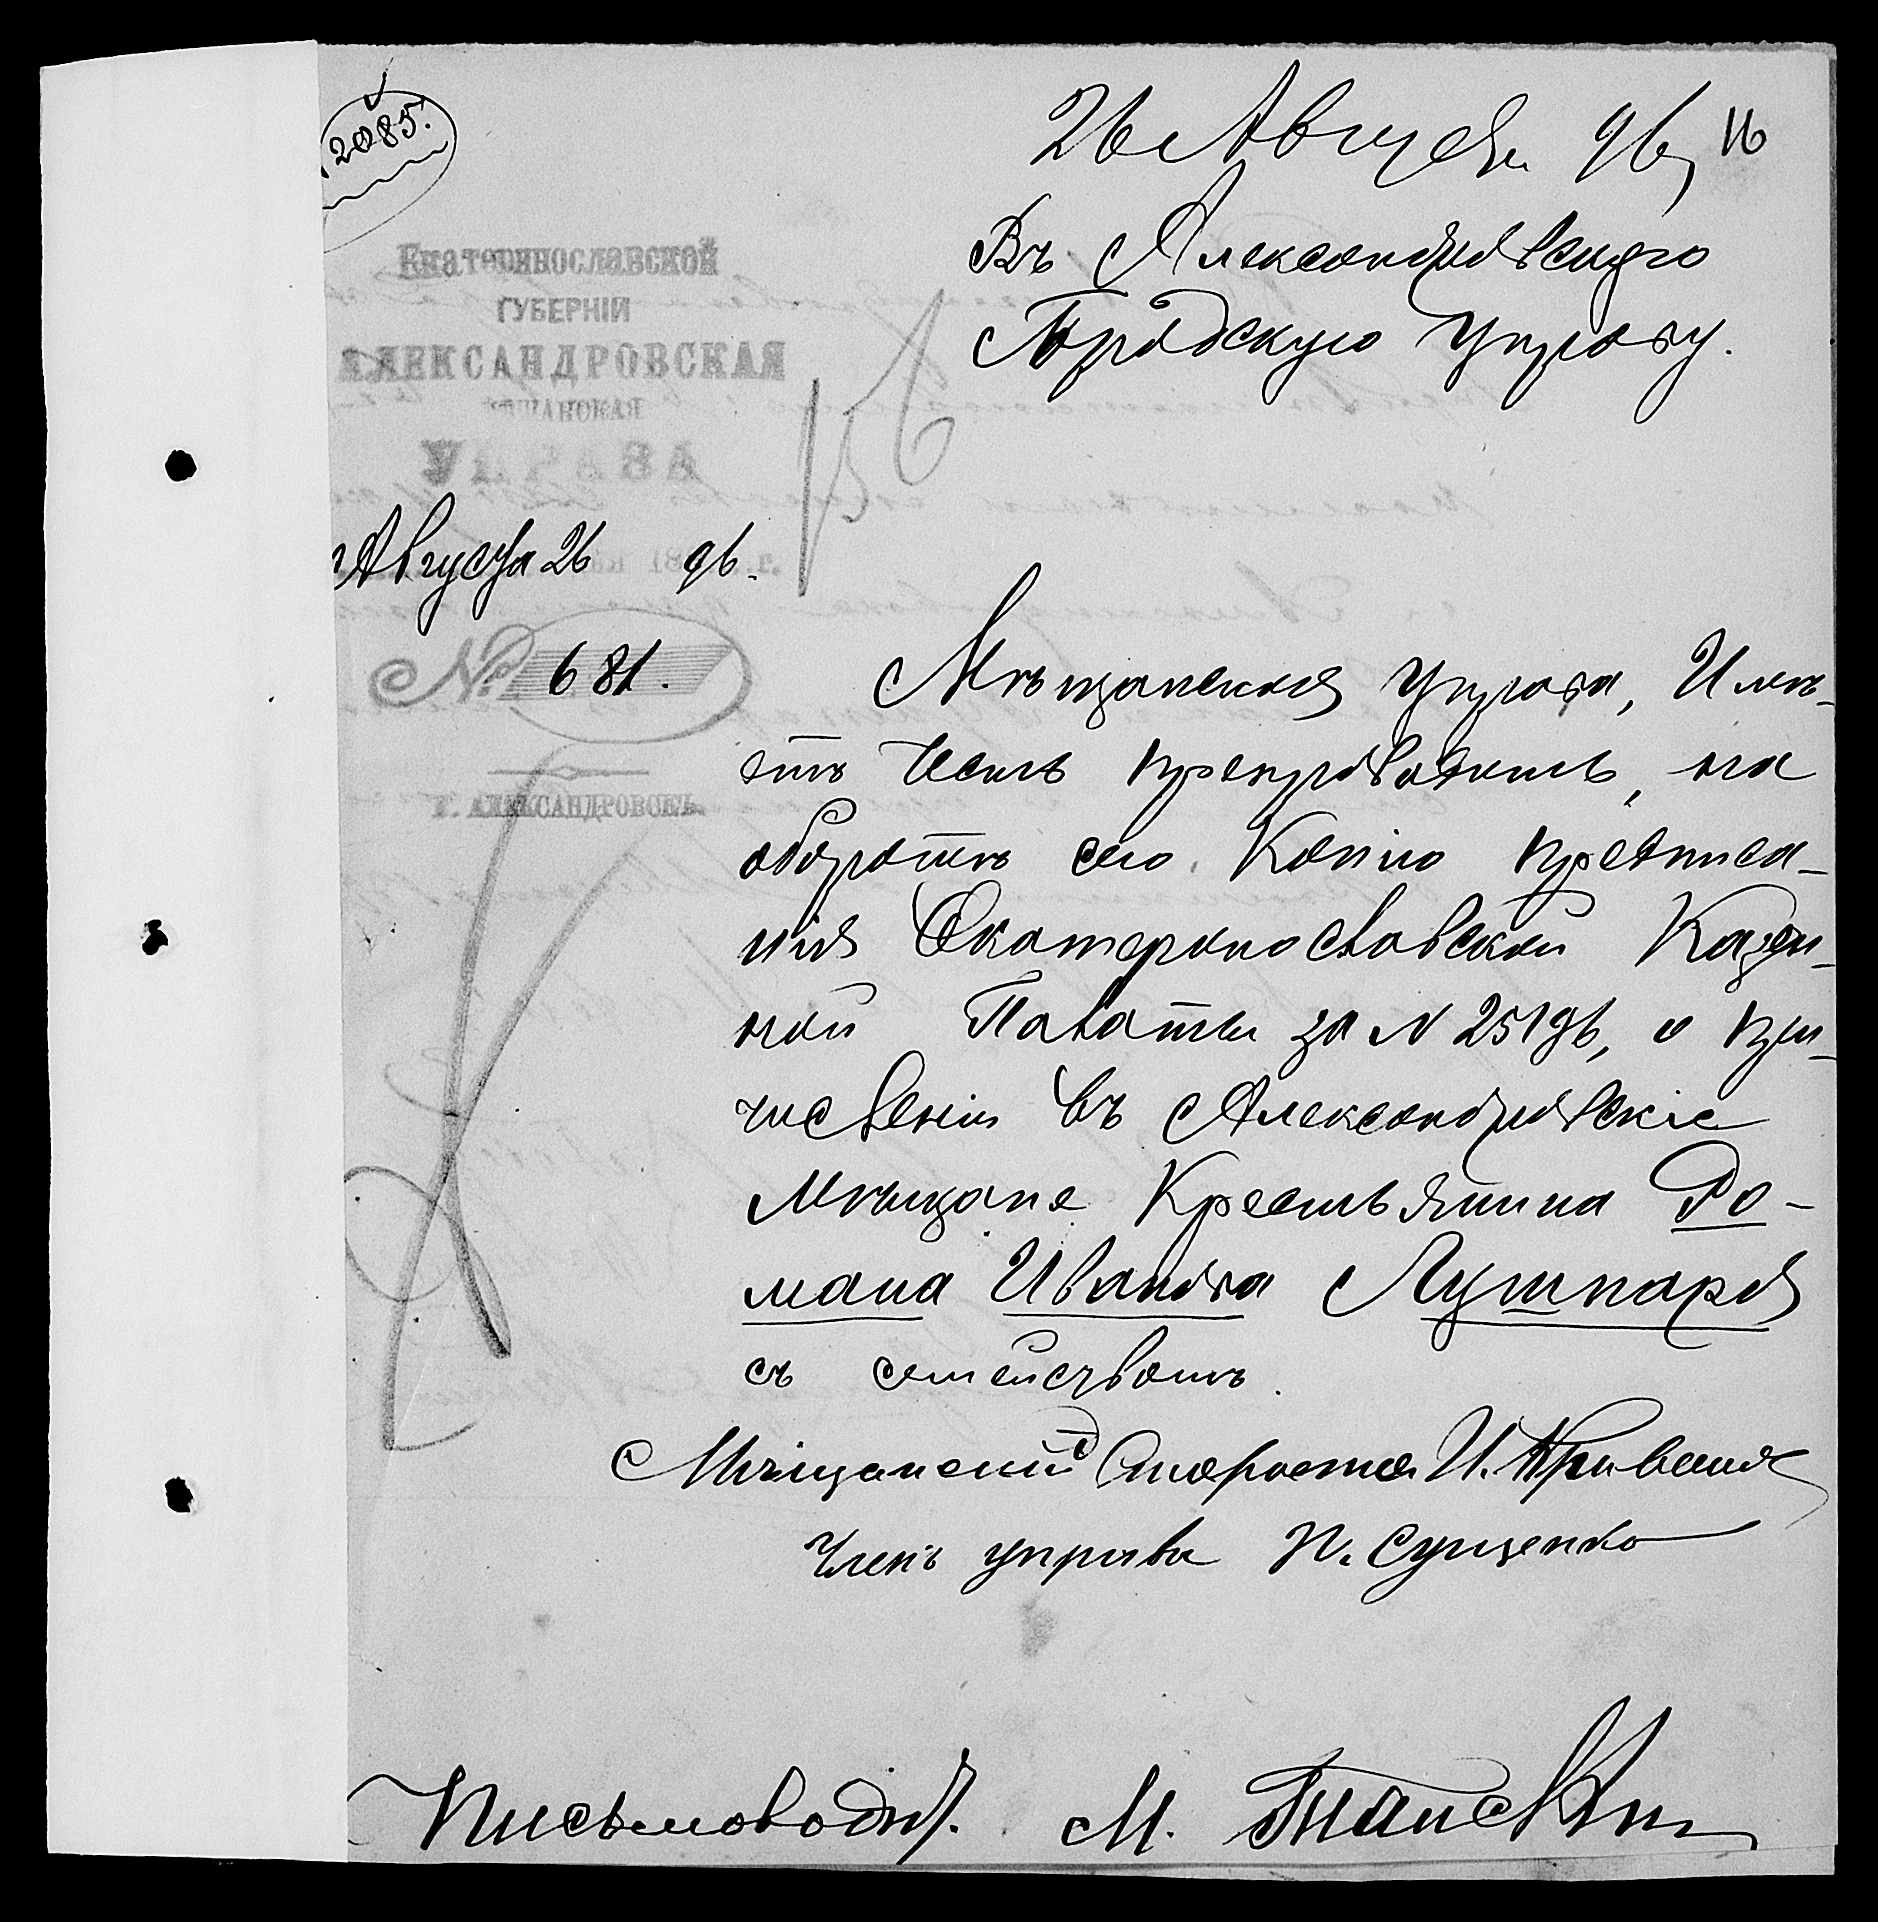 2085.
26 Августа 96
16
Въ Александровскую
Городскую Управу.
Екатеринославской
ГУБЕРНІИ
АЛЕКСАНДРОВСКАЯ
МѢЩАНСКАЯ
УПРАВА
156
Августа 26 96.
№ 681.
Г. АЛЕКСАНДРОВСКЪ.
Мѣщанская Управа, Имѣ-
етъ Честь препроводить, на
оборотѣ сего Копію предписа-
нія Екатеринославской Казен-
ной Палаты за N 25196, о при-
численіи въ Александровскіе
Мѣщане Крестьянина Ро-
мана Иванова Лушпаря
съ семействомъ.
Мѣщанский Староста И.
Членъ управы П. Сущенко
Письмовод. М.